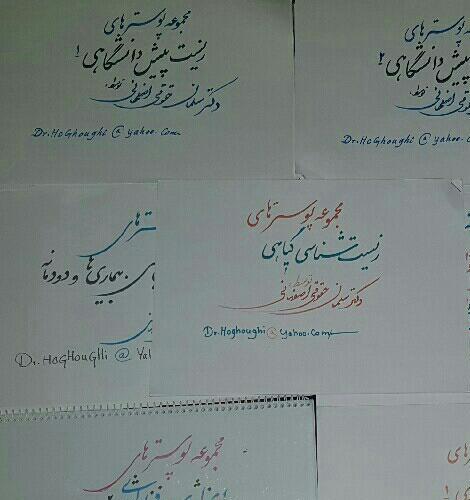 مجموعه پوسترهای
زیست پیش دانشگاهی ۱
توسط:
دکتر سلمان حقوقی اصفهانی
Dr.HoGhoughi @ yahoo.com
پوسترهای
پیش دانشگاهی ۲
توسط:
حقوقی اصفهانی
Dr.HoGhoughi @ yahoo.c
سترهای
بیماری‌ها و دودمانه
Dr.HOGHOUGHi @ Yah
مجموعه پوسترهای
زیست شناسی گیاهی
توسط:
دکتر سلمان حقوقی اصفهانی
Dr.Hoghoughi@yahoo.com
مجموعه پوسترهای